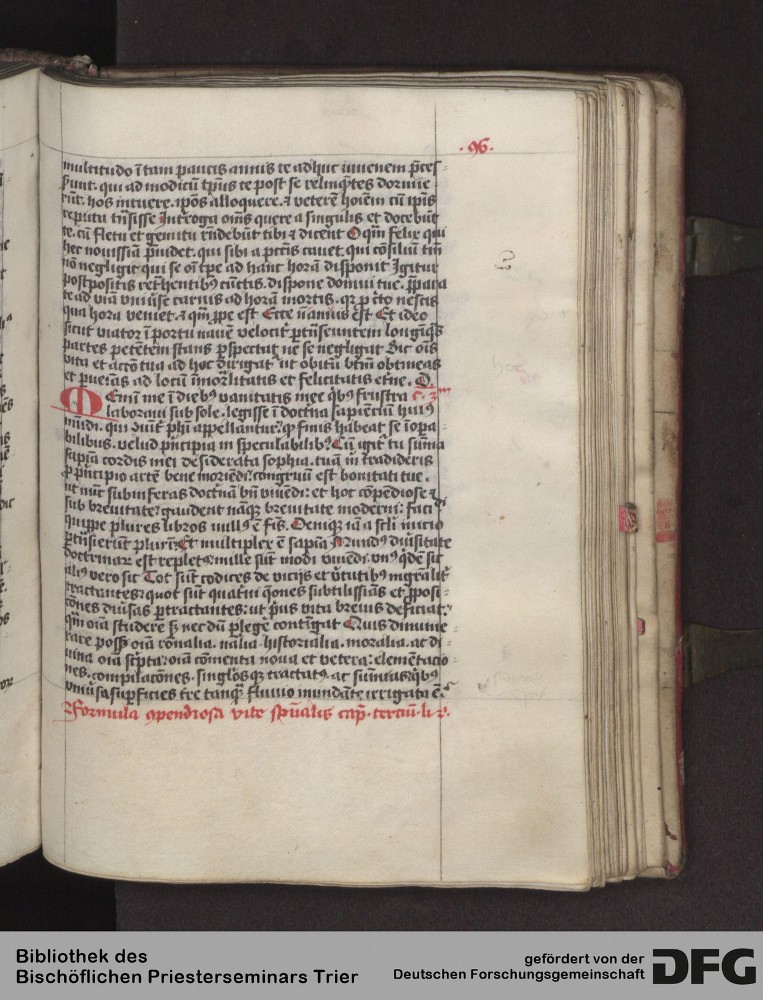 .96.
multitudo ītam paucis annis te adhuc iuuenem p̄ces-
serunt. qui ad modicū tp̄us te post se relinq̄tes dormie
rūt. hos intuere. ip̄os alloquere. ⁊ veterē hoīem cū ip̄is
reputa trāsisse Interroga om̄s quere a singulis et docebūt
te. cū fletu et gemitu rn̄debūt tibi ⁊ dicent O qm̄ felix qui
hec nouissīa p̄uidet. qui sibi a pctīs cauet. qui cōsiliū tuū
nō negligit qui se oī tp̄e ad hanc horā disponit Igitur
postpositis ret̄hentibꝰ cūctis. dispone domui tue. p̄para
te ad viā vniūse carnis ad horā mortis. qꝛ p̄ c̄to nescis
qua hora veniet. ⁊ qm̄ ꝓpe est Ecce n̄ amiꝰ est Et ideo
sicut viator ī portu nauē velocit̄ ptn̄seuntem longīqͣs
partes petētem stans pspectat. ne se negligat Sic oīs
vita et actō tua ad hoc dirigat᷑ ut obitū btm̄ obtineas
et pueīas ad locū īmortlitatis et felicitatis et̄ne. D.
MEmī me ī diebꝰ vanitatis mee qͥbꝰ frustra c. 3m
laboraui sub sole. legisse ī doctīa sapiēciū huiꝰ
mūdi. qui dn̄r ph̄i appellantur. ꝙ finis habeat se ī opa
bilibus. velud p̄ncipia in speculabilibꝰ Cū igit᷑ tu sūma
sapīa cordis mei desiderata sophia. tuā m̄ tradideris
ꝓ p̄ncipio artē bene moriēdi: congruū est bonitati tue.
ut nūc subinferas doctnā bn̄ viuēdi: et hoc cōpēdiose ⁊
sub breuitate: gaudent nāqꝫ breuitate moderni: faci
quippe plures libros nullꝰ ē fīs. Deniqꝫ iā a scl̄i inicio
ptn̄sierūt plurī. Et multiplex ē sapīa Mundꝰ diūsitate
doctrinaꝝ est repletꝰ: mille sūt modi viuēdi. vnꝰ qdē sit
aliꝰ vero sic Tot sūt codices de vicijs et v̄tutibꝰ
tractantes: quot sūt quat̄ni q̄ones subtilissīas et ꝓposi
cōnes diūsas ptractantes: ut p̄us vita breuis deficiat.
qm̄ oīa studere sꝫ nec dū plege contīgat Quis dinume
rare possꝫ oīa rōnalia. nālia. historialia. moralia. ac di
uina oīa sc̄pta. oīa cōmenta noua et vetera: elemētacio
nes. compilacōnes. singlosqꝫ tractatꝰ. ac sūmas: qͥbꝰ
vniūsa sup̄ficies t̄re tanqꝫ fluuio inundāte irrigata ē.
Formula ꝯpendiosa vite sp̄ualis cap̄. terciū. li. 2.
Bibliothek des
Bischöflichen Priesterseminars Trier
gefördert von der
Deutschen Forschungsgemeinschaft
DFG